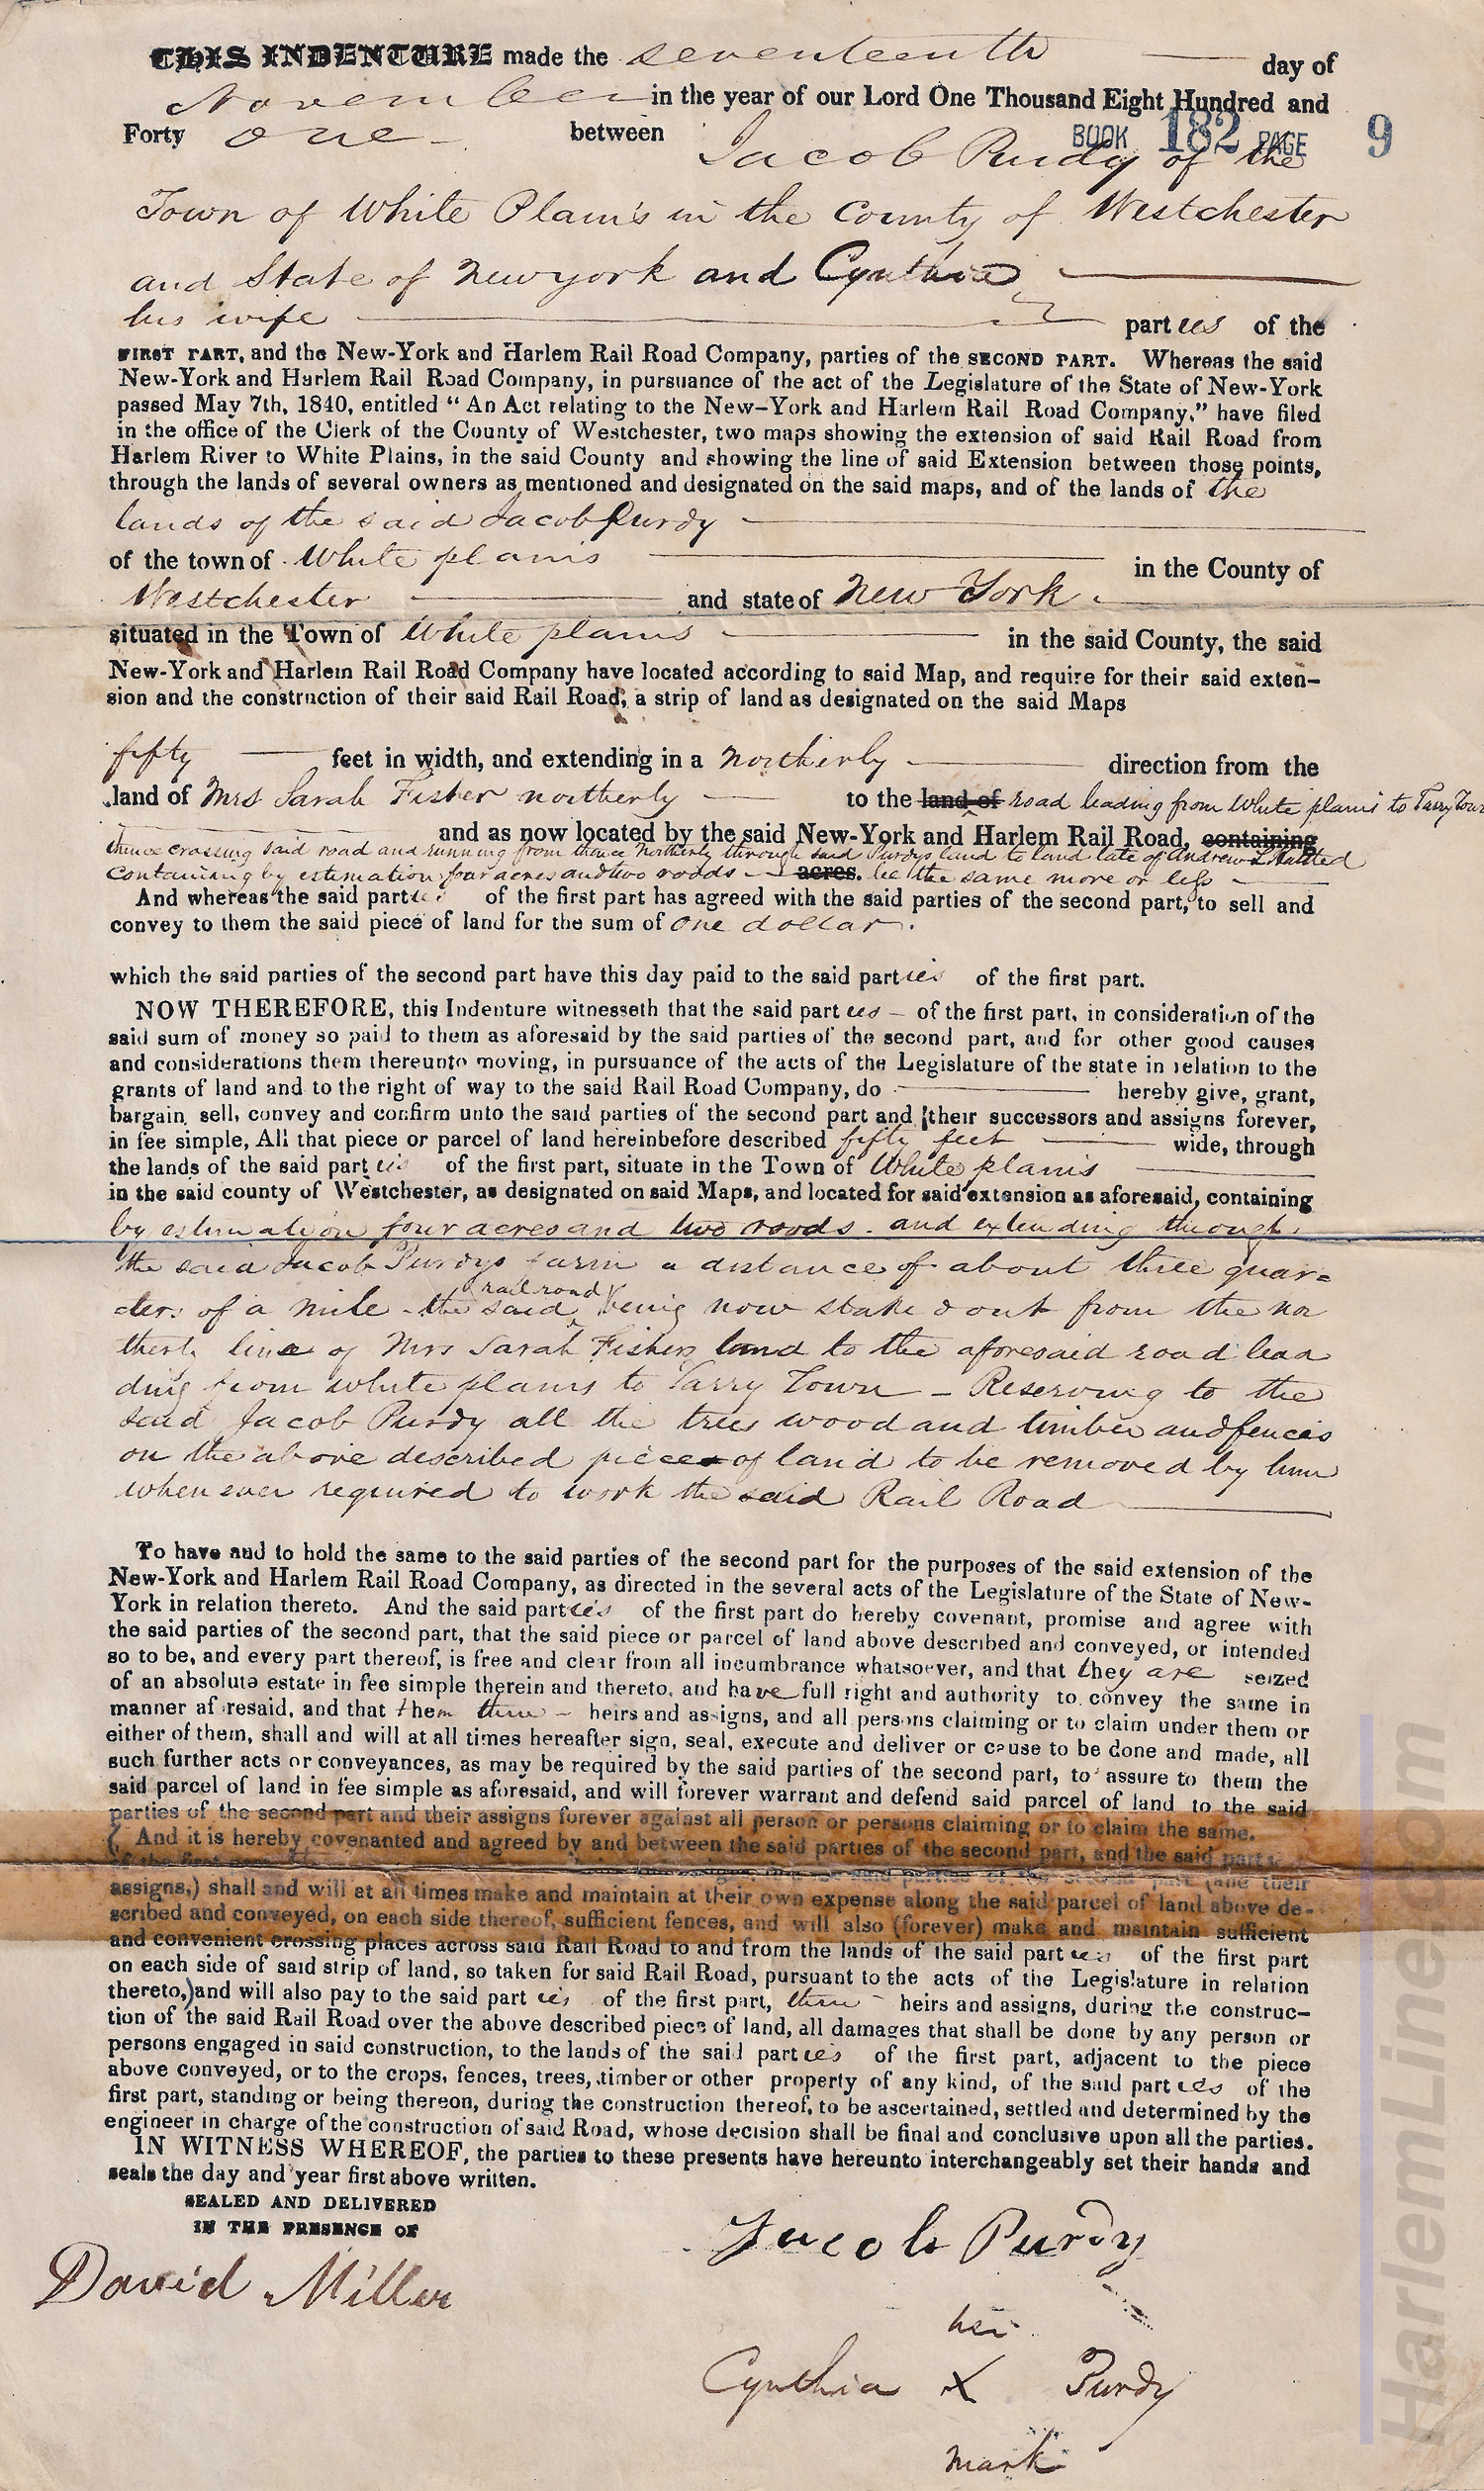 THIS INDENTURE made the seventeenth day of
November in the year of our Lord One Thousand Eight Hundred and
Forty one between Jacob Purdy of the
BOOK 182 PAGE 9
Town of White Plains in the County of Westchester
and State of Newyork and Cynthia
his wife parties of the
FIRST PART, and the New-York and Harlem Rail Road Company, parties of the SECOND PART. Whereas the said
New-York and Harlem Rail Road Company, in pursuance of the act of the Legislature of the State of New-York
passed May 7th, 1840, entitled “ An Act relating to the New-York and Harlem Rail Road Company,” have filed
in the office of the Clerk of the County of Westchester, two maps showing the extension of said Rail Road from
Harlem River to White Plains, in the said County and showing the line of said Extension between those points,
through the lands of several owners as mentioned and designated on the said maps, and of the lands of the
lands of the said Jacob Purdy
of the town of White plains in the County of
Westchester and state of New York.
situated in the Town of White plains in the said County, the said
New-York and Harlem Rail Road Company have located according to said Map, and require for their said exten-
sion and the construction of their said Rail Road, a strip of land as designated on the said Maps
fifty feet in width, and extending in a northerly direction from the
land of Mrs Sarah Fisher northerly to the land of road leading from White plains to Tarry Town
and as now located by the said New-York and Harlem Rail Road, containing
thence crossing said road and running from thence Northerly through said Purdys land to land late of Andrew Halsted
containing by estimation four acres and two roods acres. be the same more or less
And whereas the said parties of the first part has agreed with the said parties of the second part, to sell and
convey to them the said piece of land for the sum of one dollar.
which the said parties of the second part have this day paid to the said parties of the first part.
NOW THEREFORE, this Indenture witnesseth that the said parties of the first part, in consideration of the
said sum of money so paid to them as aforesaid by the said parties of the second part, and for other good causes
and considerations them thereunto moving, in pursuance of the acts of the Legislature of the state in relation to the
grants of land and to the right of way to the said Rail Road Company, do hereby give, grant,
bargain, sell, convey and confirm unto the said parties of the second part and their successors and assigns forever,
in fee simple, All that piece or parcel of land hereinbefore described fifty feet wide, through
the lands of the said parties of the first part, situate in the Town of White plains
in the said county of Westchester, as designated on said Maps, and located for said extension as aforesaid, containing
by estimation four acres and two roods. and extending through
the said Jacob Purdys farm a distance of about three quar=
ters of a mile - the said rail road being now staked out from the nor
therly line of Mrs Sarah Fishers land to the aforesaid road lea
ding from white plains to Tarry Town - Reserving to the
said Jacob Purdy all the trees wood and timber and fences
on the above described piece of land to be removed by him
when ever required to work the said Rail Road
To have and to hold the same to the said parties of the second part for the purposes of the said extension of the
New-York and Harlem Rail Road Company, as directed in the several acts of the Legislature of the State of New-
York in relation thereto. And the said parties of the first part do hereby covenant, promise and agree with
the said parties of the second part, that the said piece or parcel of land above described and conveyed, or intended
so to be, and every part thereof, is free and clear from all incumbrance whatsoever, and that they are seized
of an absolute estate in fee simple therein and thereto, and have full right and authority to convey the same in
manner aforesaid, and that them their heirs and assigns, and all persons claiming or to claim under them or
either of them, shall and will at all times hereafter sign, seal, execute and deliver or cause to be done and made, all
such further acts or conveyances, as may be required by the said parties of the second part, to assure to them the
said parcel of land in fee simple as aforesaid, and will forever warrant and defend said parcel of land to the said
parties of the second part and their assigns forever against all person or persons claiming or to claim the same.
( And it is hereby covenanted and agreed by and between the said parties of the second part, and the said parties
of the first part, parties of the second part (and their
assigns,) shall and will at all times make and maintain at their own expense along the said parcel of land above de-
scribed and conveyed, on each side thereof, sufficient fences, and will also (forever) make and maintain sufficient
and convenient crossing places across said Rail Road to and from the lands of the said parties of the first part
on each side of said strip of land, so taken for said Rail Road, pursuant to the acts of the Legislature in relation
thereto,) and will also pay to the said parties of the first part, their heirs and assigns, during the construc-
tion of the said Rail Road over the above described piece of land, all damages that shall be done by any person or
persons engaged in said construction, to the lands of the said parties of the first part, adjacent to the piece
above conveyed, or to the crops, fences, trees, timber or other property of any kind, of the said parties of the
first part, standing or being thereon, during the construction thereof, to be ascertained, settled and determined by the
engineer in charge of the construction of said Road, whose decision shall be final and conclusive upon all the parties.
IN WITNESS WHEREOF, the parties to these presents have hereunto interchangeably set their hands and
seals the day and year first above written.
SEALED AND DELIVERED
IN THE PRESENCE OF
David Miller
Jacob Purdy
her
Cynthia X Purdy
mark
HarlemLine.com